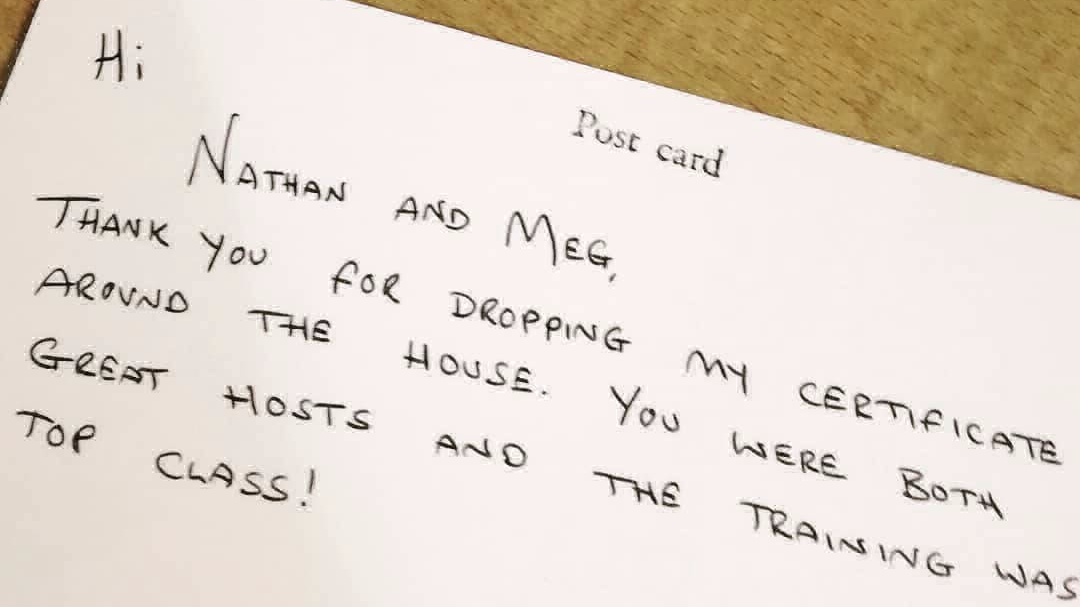 Hi
Post card
NATHAN AND MEG,
THANK YOU FOR DROPPING MY CERTIFICATE
AROUND THE HOUSE. YOU WERE BOTH
GREAT HOSTS AND THE TRAINING WAS
TOP CLASS!